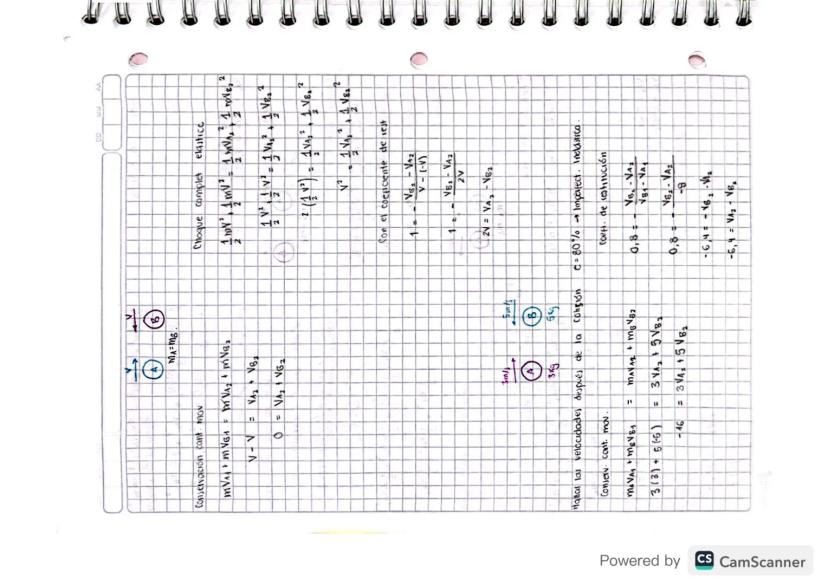 V V
A B
mA=mB.
Conservación cant. mov
mVA1 + mVB1 = mVA2 + mVB2
V - V = VA2 + VB2
0 = VA2 + VB2
Choque complet elastico
1/2 mV² + 1/2 mV² = 1/2 mVA2² + 1/2 mVB2²
1/2 V² + 1/2 V² = 1/2 VA2² + 1/2 VB2²
2 (1/2 V²) = 1/2 VA2² + 1/2 VB2²
V² = 1/2 VA2² + 1/2 VB2²
Con el coeficiente de rest
1 = - (VB2 - VA2) / (V - (-V))
1 = - (VB2 - VA2) / 2V
2V = VA2 - VB2
3m/s 5m/s
A B
3kg 5kg
Hallar las velocidades después de la colisión e=80% → Imperfect. inelástico.
Conserv. cant. mov.
mAVA1 + mBVB1 = mAVA2 + mBVB2
3(3) + 5(-5) = 3VA2 + 5VB2
-16 = 3VA2 + 5VB2
Coefi. de restitución
0,8 = - (VB2 - VA2) / (VB1 - VA1)
0,8 = - (VB2 - VA2) / -8
-6,4 = - VB2 - VA2
-6,4 = VA2 - VB2
Powered by CS CamScanner